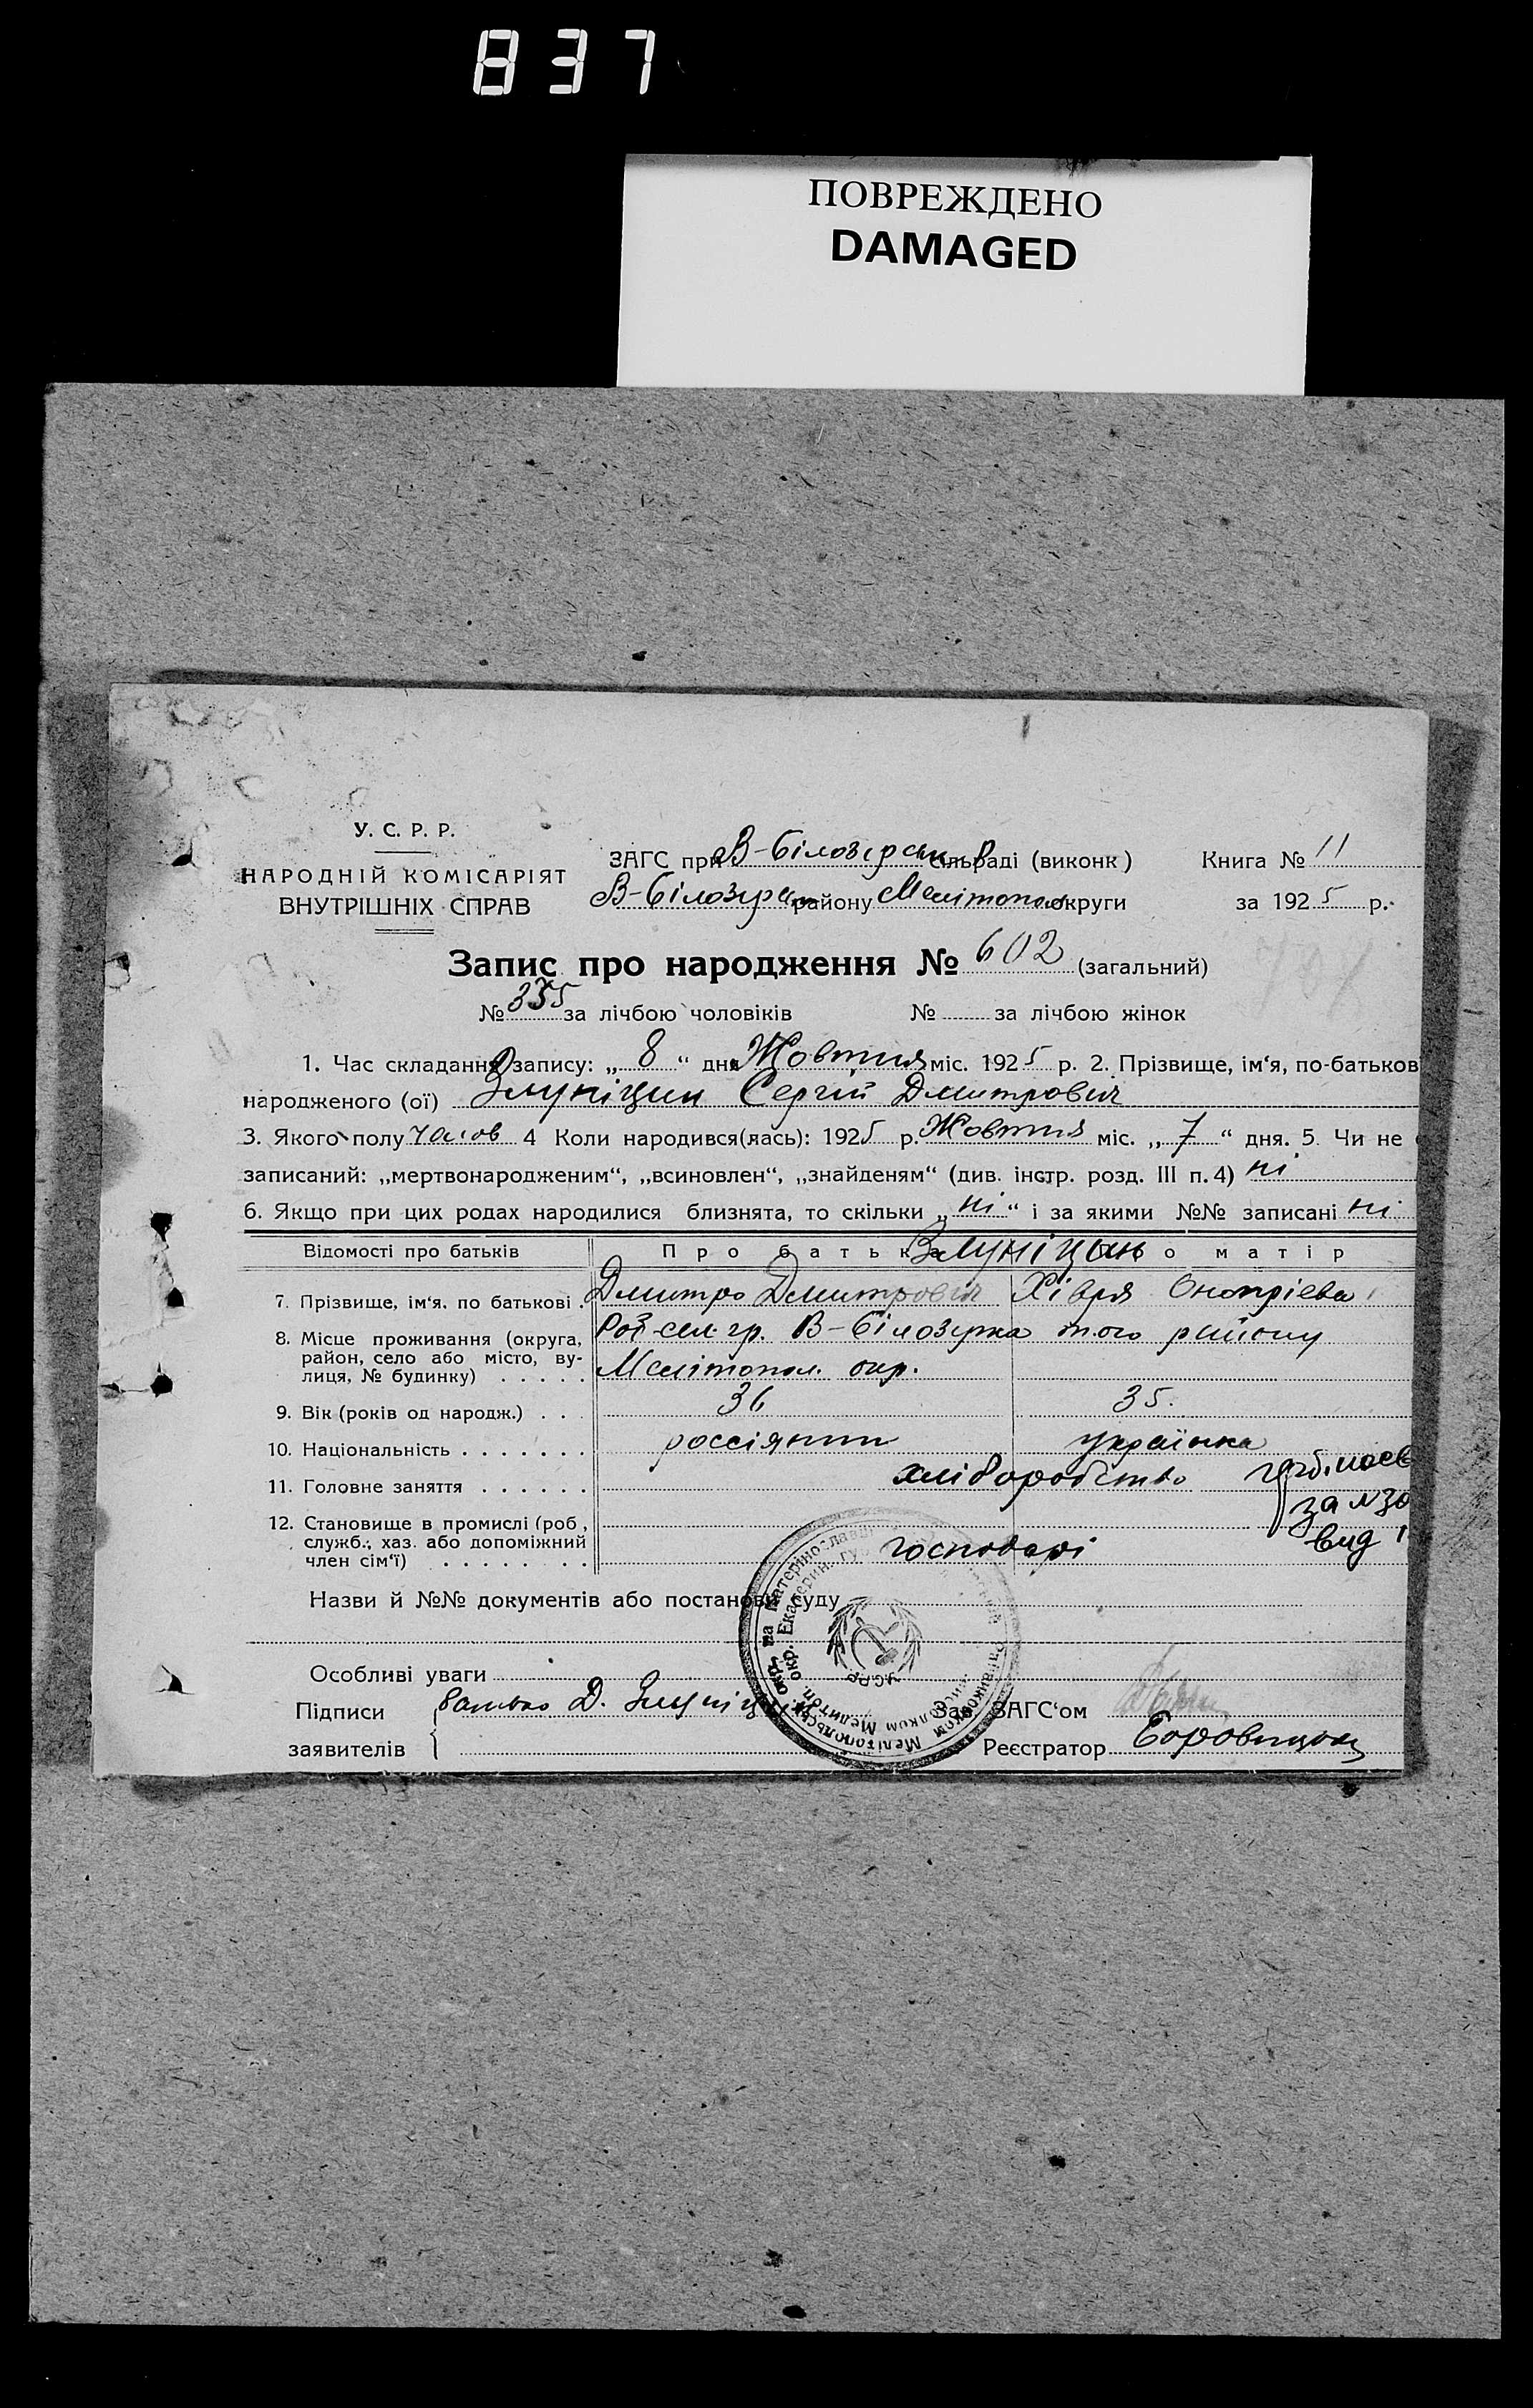 837
ПОВРЕЖДЕНО
DAMAGED
У. С. Р. Р.
НАРОДНІЙ КОМІСАРІЯТ
ВНУТРІШНІХ СПРАВ
ЗАГС при В-Білозірськ. сільраді (виконк) Книга № 11
В-Білозирск району Мелітопол округи за 1925 р.
Запис про народження № 602 (загальний)
№ 335 за лічбою чоловіків № за лічбою жінок
1. Час складання запису: „ 8 “ дня Жовтня міс. 1925 р. 2. Прізвище, ім‘я, по-батьков
народженого (ої) Злуніцин Сергій Дмитрович
3. Якого полу чолов 4 Коли народився(лась): 1925 р. Жовтня міс. „ 7 “ дня. 5. Чи не
записаний: „мертвонародженим“, „всиновлен“, „знайденям“ (див. інстр. розд. III п. 4) ні
6. Якщо при цих родах народилися близнята, то скільки „ ні “ і за якими №№ записані ні
Відомості про батьків Про батька Про матір
Злуніцини
7. Прізвище, ім‘я. по батькові . Дмитро Дмитрович Хівря Онопріева
8. Місце проживання (округа, В-Білозірка того району
район, село або місто, ву-
лиця, № будинку) . . . . . Мелітопол. окр.
9. Вік (років од народж.) . . . 36 35.
10. Національність . . . . . . . россіянин українка
11. Головне заняття . . . . . . хліборобство
12. Становище в промислі (роб, за
служб., хаз. або допоміжний господарі вид
член сім‘ї) . . . . . . . .
Назви й №№ документів або постанови суду
Особливі уваги
Підписи батько Д. Зав ЗАГС‘ом
заявителів Реєстратор